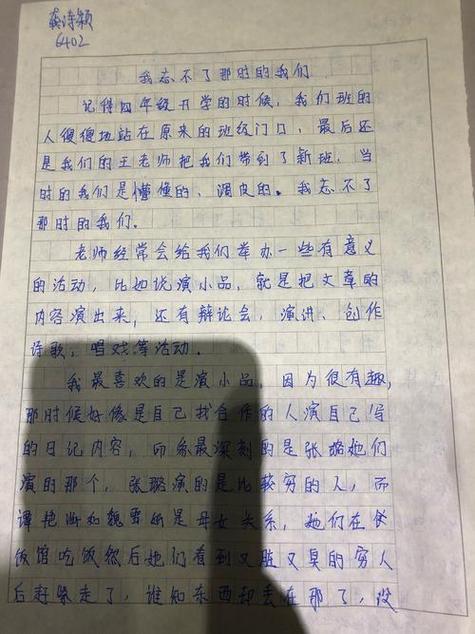 龚诗颖
6402
我忘不了那时的我们
记得四年级开学的时候，我们班的
人傻傻地站在原来的班级门口，最后还
是我们的王老师把我们带到了新班，当
时的我们是懵懂的、调皮的。我忘不了
那时的我们。
老师经常会给我们举办一些有意义
的活动，比如说演小品，就是把文章的
内容演出来，还有辩论会，演讲、创作
诗歌，唱戏等活动．
我最喜欢的是演小品，因为很有趣，
那时候好像是自己找合作的人演自己写
的日记内容，印象最深刻的是张璐她们
演的那个，张璐演的是比较穷的人，而
谭艳 和魏雪 是母女关系，她们在
饭馆吃饭然后她们看到又脏又臭的穷人
后赶紧走了，谁知东西却丢在那了，没